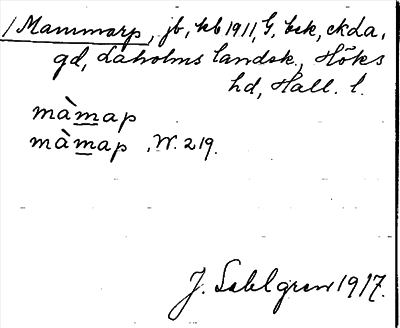 /Mammarp, jb, kb 1911, G, bek, ckda,
gd, Laholms landsk., Höks
hd, Hall. l.
màmap
màmap , W. 219.
J. Sahlgren 1917.